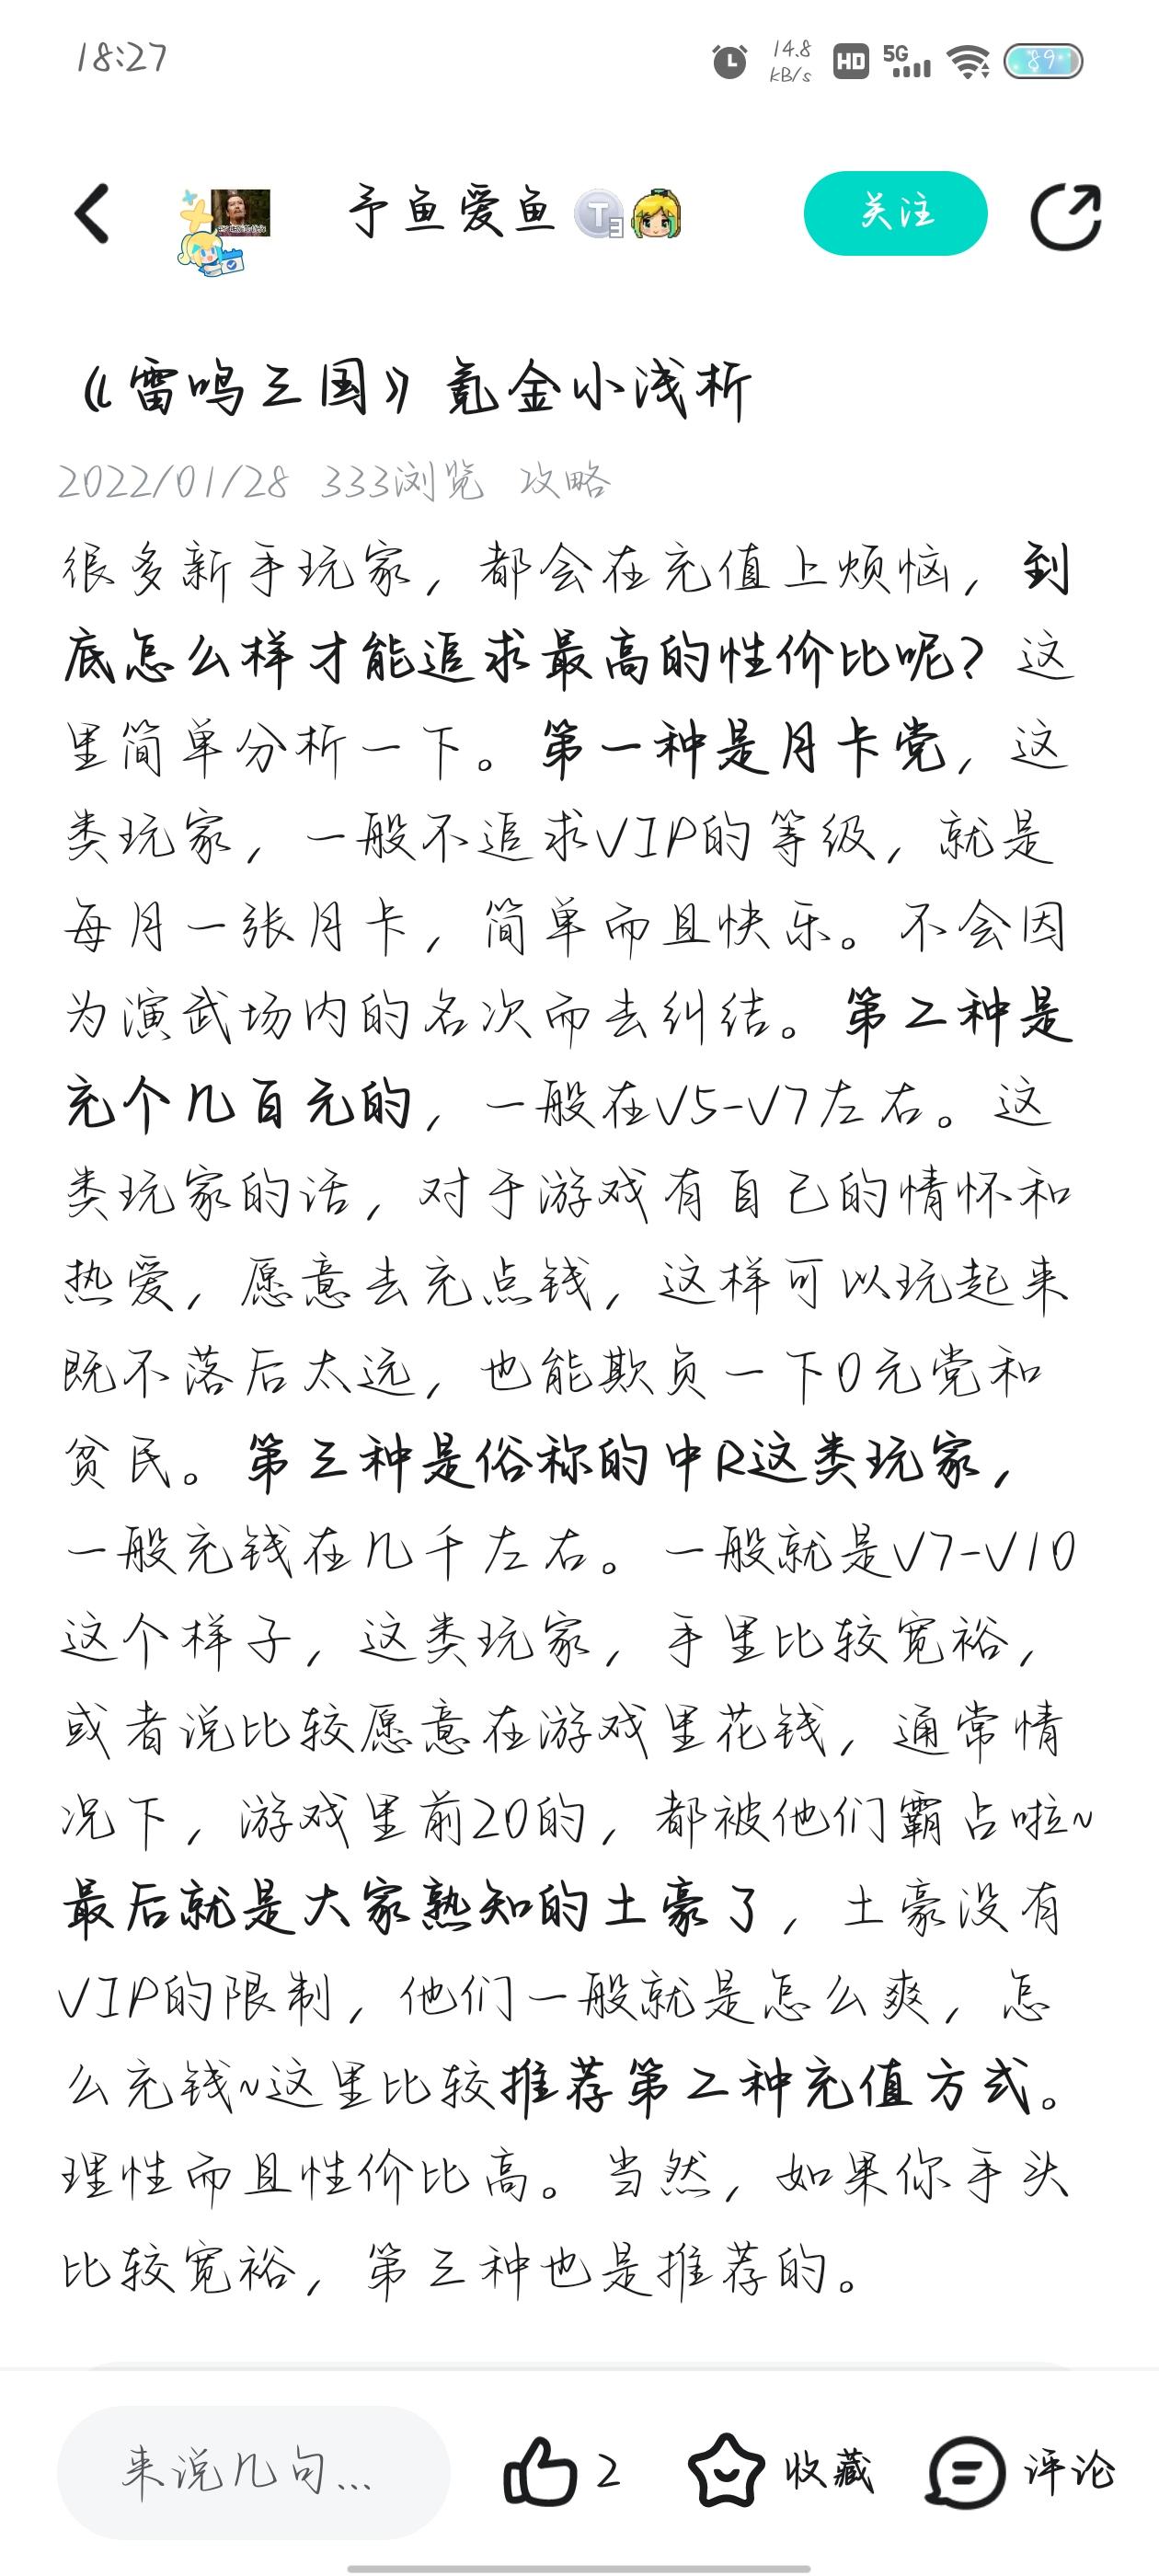 18:27
14.8
KB/s
HD
5G
89
予鱼爱鱼
T
3
关注
《雷鸣三国》氪金小浅析
2022/01/28 333浏览 攻略
很多新手玩家，都会在充值上烦恼，到
底怎么样才能追求最高的性价比呢？这
里简单分析一下。第一种是月卡党，这
类玩家，一般不追求VIP的等级，就是
每月一张月卡，简单而且快乐。不会因
为演武场内的名次而去纠结。第二种是
充个几百元的，一般在V5-V7左右。这
类玩家的话，对于游戏有自己的情怀和
热爱，愿意去充点钱，这样可以玩起来
既不落后太远，也能欺负一下0元党和
贫民。第三种是俗称的中R这类玩家，
一般充钱在几千左右。一般就是V7-V10
这个样子，这类玩家，手里比较宽裕，
或者说比较愿意在游戏里花钱，通常情
况下，游戏里前20的，都被他们霸占啦~
最后就是大家熟知的土豪了，土豪没有
VIP的限制，他们一般就是怎么爽，怎
么充钱~这里比较推荐第二种充值方式。
理性而且性价比高。当然，如果你手头
比较宽裕，第三种也是推荐的。
来说几句...
2
收藏
评论